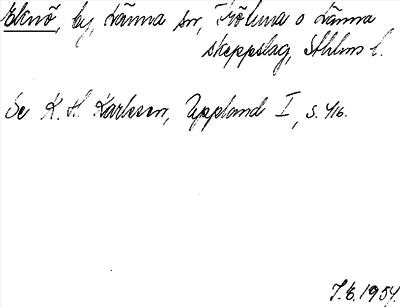 Eknö, by, Länna sn, Frötuna o Länna
skeppslag, Sthlms l.
Se K. H. Karlsson, Uppland I, s. 416.
J.E. 1954.